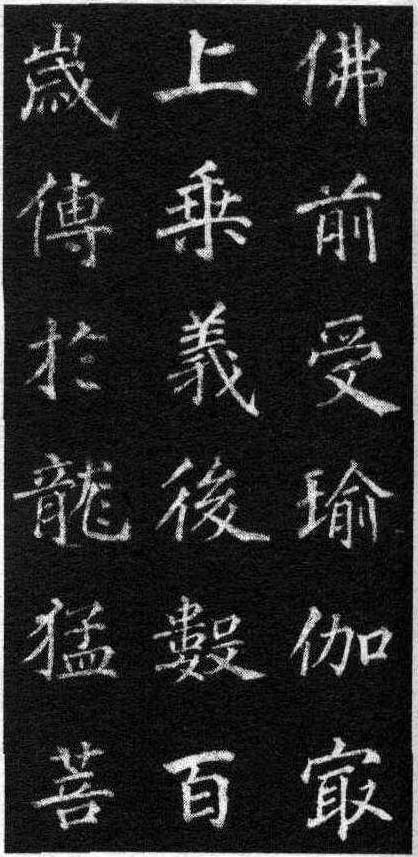 佛前受瑜伽冣
上乗義後數百
歲傳於龍猛菩